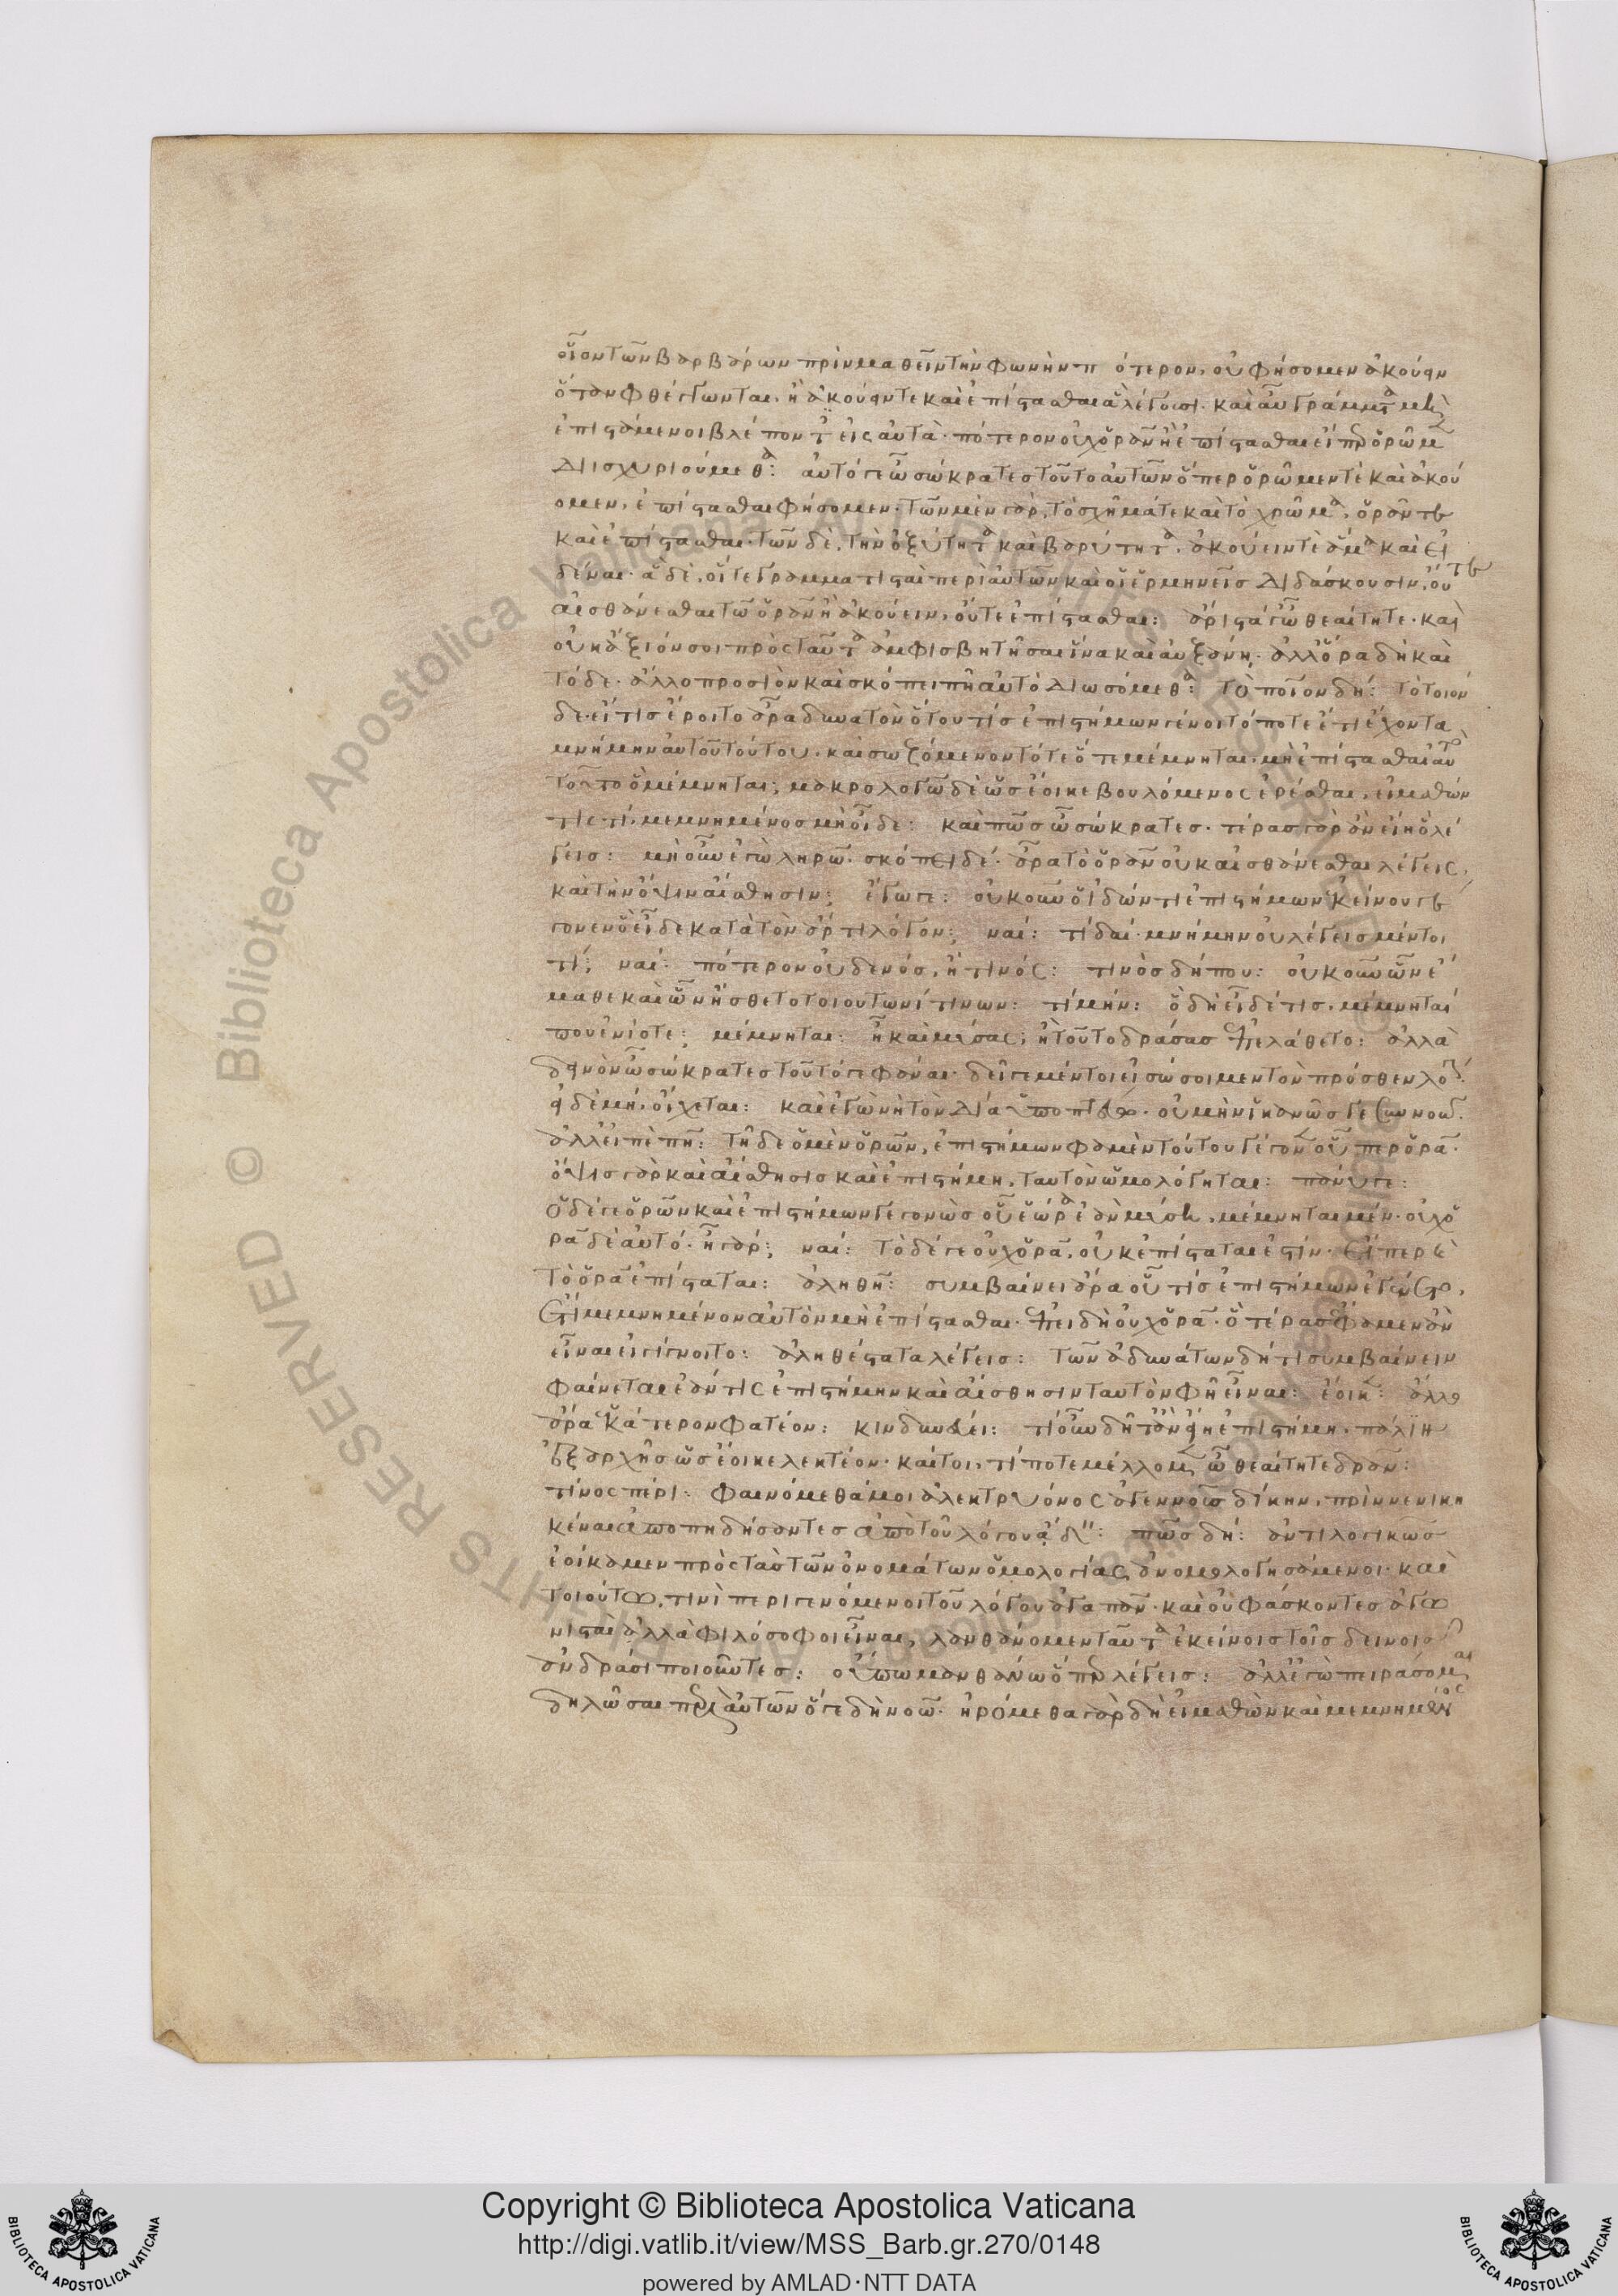 οἷον τῶν βαρβάρων πρὶν μαθεῖν τὴν φωνὴν πότερον, οὐ φήσομεν ἀκούειν
ὅταν φθέγγωνται. ἢ ἀκούειν τε καὶ ἐπίστασθαι ἃ λέγουσι. καὶ αὖ γράμματα μὴ
ἐπιστάμενοι βλέποντες εἰς αὐτὰ. πότερον οὐχ ὁρᾶν ἢ ἐπίστασθαι εἴπερ ὁρῶμεν
διισχυριούμεθα: αὐτό γε ὦ σώκρατες τοῦτο αὐτῶν ὅπερ ὁρῶμέν τε καὶ ἀκού
ομεν, ἐπίστασθαι φήσομεν. τῶν μὲν γὰρ, τὸ σχῆμά τε καὶ τὸ χρῶμα, ὁρᾶν τε
καὶ ἐπίστασθαι. τῶν δὲ, τὴν ὀξύτητα καὶ βαρύτητα, ἀκούειν τὲ ἅμα καὶ εἰ
δέναι. ἃ δὲ, οἵ τε γραμματισταὶ περὶ αὐτῶν καὶ οἱ ἑρμηνεῖς διδάσκουσιν, οὔτε
αἰσθάνεσθαι τῶ ὁρᾶν ἢ ἀκούειν, οὔτε ἐπίστασθαι: ἄριστά γ' ὦ θεαίτητε. καὶ
οὐκ ἄξιόν σοι πρὸς ταῦτα ἀμφισβητῆσαι ἵνα καὶ αὐξάνη. ἀλλ' ὅρα δὴ καὶ
τόδε. ἄλλο προσιὸν καὶ σκόπει πῆ αὐτὸ διωσόμεθα: τὸ ποῖον δή: τὸ τοιόν
δε. εἴ τις ἔροιτο ἆρα δυνατὸν ὅτου τίς ἐπιστήμων γένοιτό ποτε ἔτι ἔχοντα
μνήμην αὐτοῦ τούτου. καὶ σωζόμενον τότε ὅτε μέμνηται. μὴ ἐπίστασθαι αὐτὸ
τοῦτο ὃ μέμνηται; μακρολογῶ δὲ ὡς ἔοικε βουλόμενος ἐρέσθαι, εἰ μαθών
τίς τι, μεμνημένος μὴ οἶδε: καὶ πῶς ὦ σώκρατες. τέρας γὰρ ἂν εἴη ὃ λέ
γεις: μὴ οὖν ἐγὼ ληρῶ. σκόπει δέ. ἆρα τὸ ὁρᾶν οὐκ αἰσθάνεσθαι λέγεις,
καὶ τὴν ὄψιν αἴσθησιν; ἔγωγε: οὐκοῦν ὁ ἰδών τι ἐπιστήμων ἐκείνου γέ
γονεν ὃ εἶδε κατὰ τὸν ἄρτι λόγον; ναί: τί δαί. μνήμην οὐ λέγεις μέντοι
τί; ναί. πότερον οὐδενός, ἢ τινός: τινὸς δήπου: οὐκοῦν ὧν ἔ
μαθε καὶ ὧν ἤσθετο τοιουτωνί τινων: τί μήν: ὃ δὴ εἶδέ τις, μέμνηταί
που ἐνίοτε; μέμνηται: ἦ καὶ μύσας; ἢ τοῦτο δράσας ἐπελάθετο: ἀλλὰ
δεινὸν ὦ σώκρατες τοῦτό γε φάναι. δεῖ γε μέντοι εἰ σώσοιμεν τὸν πρόσθεν λόγον.
εἰ δὲ μή, οἴχεται: καὶ ἐγὼ νὴ τὸν δία ὑποπτεύω. οὐ μὴν ἱκανῶς γε συννοῶ.
ἀλλ' εἰπὲ πῆ: τῆδε ὁ μὲν ὁρῶν, ἐπιστήμων φαμὲν τούτου γέγονεν οὗπερ ὁρᾶ.
ὄψις γὰρ καὶ αἴσθησις καὶ ἐπιστήμη, ταυτὸν ὡμολόγηται: πάνυ γε:
ὁ δέ γε ὁρῶν καὶ ἐπιστήμων γεγονὼς οὗ ἑώρα ἐὰν μύση, μέμνηται μέν. οὐχ ὁ
ρᾶ δὲ αὐτό. ἦ γάρ; ναί: τὸ δέ γε οὐχ ὁρᾶ, οὐκ ἐπίσταταί ἐστιν. εἴπερ καὶ
τὸ ὁρᾶ ἐπίσταται: ἀληθῆ: συμβαίνει ἄρα οὗ τίς ἐπιστήμων ἐγένετο,
ἔτι μεμνημένον αὐτὸν μὴ ἐπίστασθαι. ἐπειδὴ οὐχ ὁρᾶ. ὃ τέρας ἔφαμεν ἂν
εἶναι εἰ γίγνοιτο: ἀληθέστατα λέγεις: τῶν ἀδυνάτων δή τι συμβαίνειν
φαίνεται ἐάν τις ἐπιστήμην καὶ αἴσθησιν ταυτὸν φῆ εἶναι: ἔοικεν: ἄλλο
ἄρα ἑκάτερον φατέον: κινδυνεύει: τί οὖν δῆτ' ἂν εἴη ἐπιστήμη. πάλιν
ἐξ ἀρχῆς ὡς ἔοικε λεκτέον. καίτοι, τί ποτε μέλλομεν ὦ θεαίτητε δρᾶν:
τίνος πέρι: φαινόμεθά μοι ἀλεκτρυόνος ἀγεννοῦς δίκην, πρὶν νενικη
κέναι ἀποπηδήσαντες ἀπὸ τοῦ λόγου ἄδειν: πῶς δή: ἀντιλογικῶς
ἐοίκαμεν πρὸς τὰς τῶν ὀνομάτων ὁμολογίας ἀνομολογησάμενοι. καὶ
τοιούτω, τινὶ περιγενόμενοι τοῦ λόγου ἀγαπᾶν. καὶ οὐ φάσκοντες ἀγω
νισταὶ ἀλλὰ φιλόσοφοι εἶναι, λανθάνομεν ταυτὰ ἐκείνοις τοῖς δεινοῖς
ἀνδράσι ποιοῦντες: οὔπω μανθάνω ὅπως λέγεις: ἀλλ' ἐγὼ πειράσομαι
δηλῶσαι περὶ αὐτῶν ὅ γε δὴ νοῶ. ἠρόμεθα γὰρ δὴ εἰ μαθὼν καὶ μεμνημένος
Copyright © Biblioteca Apostolica Vaticana
http://digi.vatlib.it/view/MSS_Barb.gr.270/0148
powered by AMLAD·NTT DATA